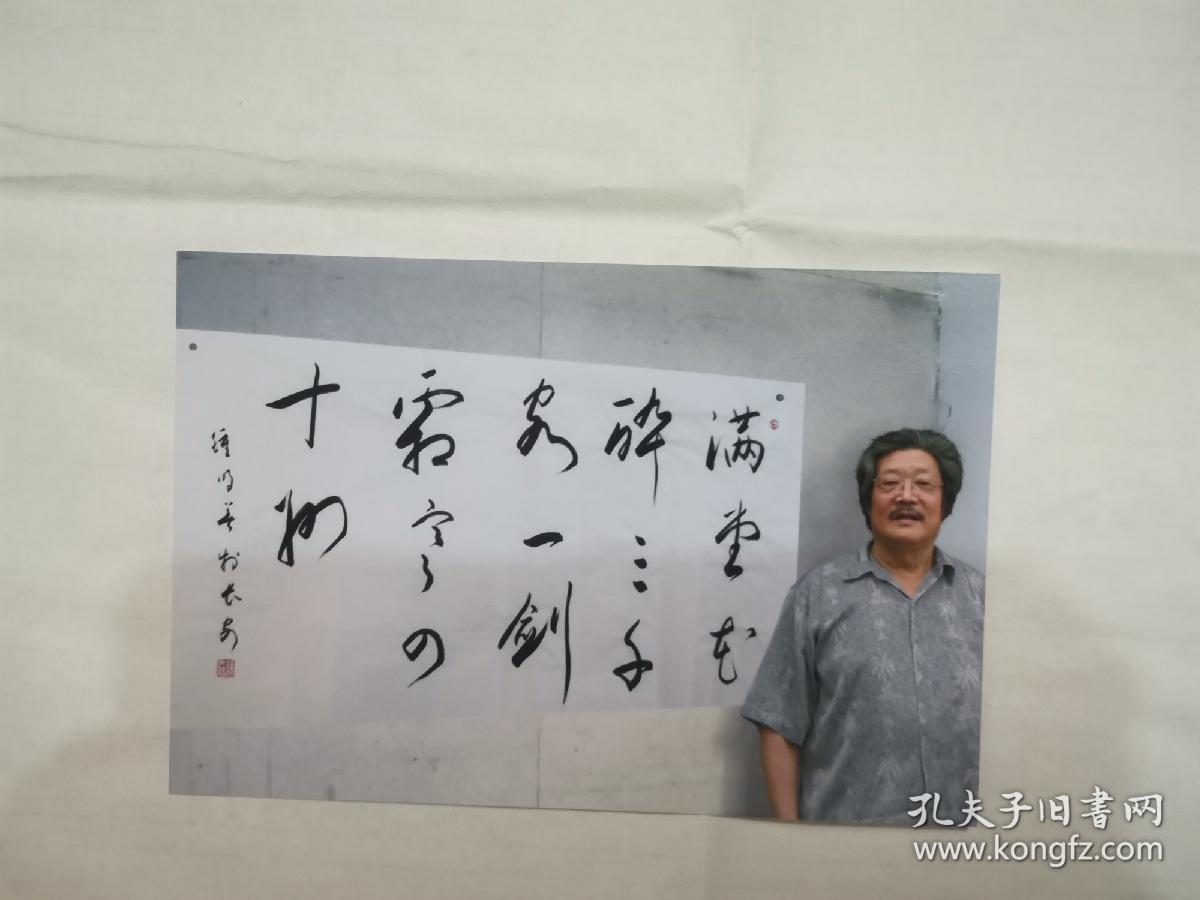 满堂花
醉三千
客一剑
霜寒四
十州
钟明善于长安
孔夫子旧書网
www.kongfz.com